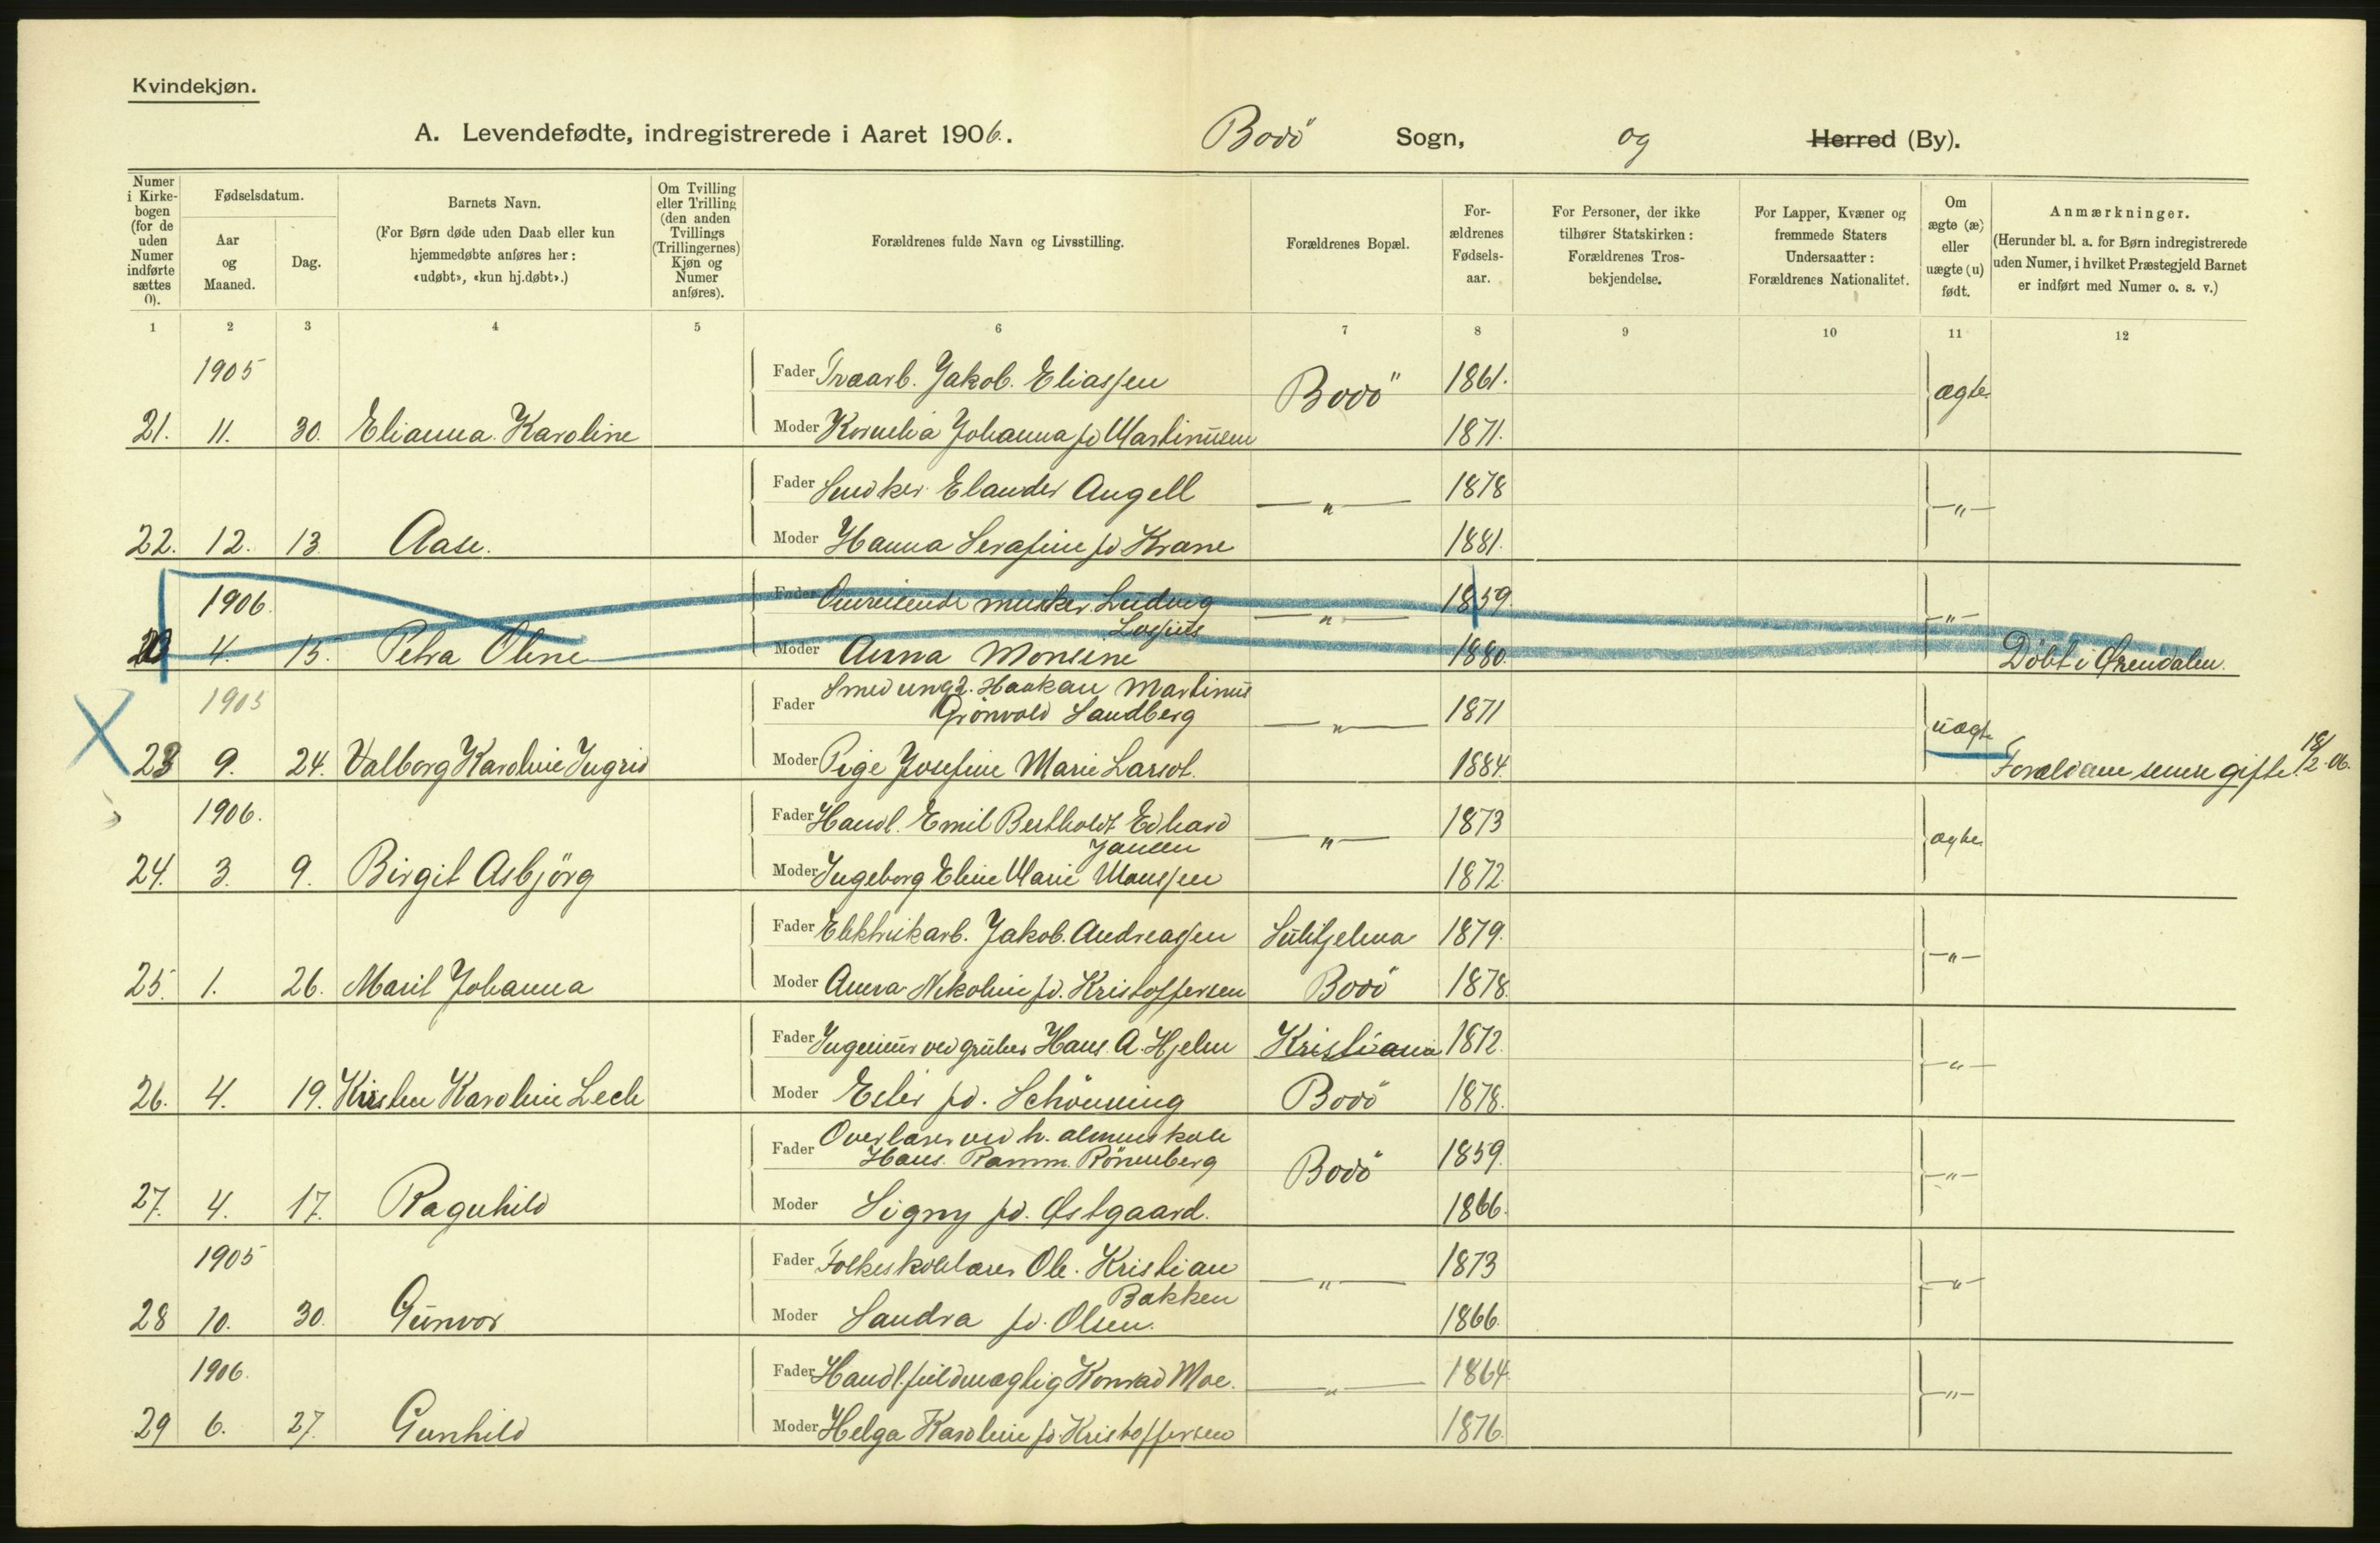 Kvindekjøn.
A. Levendefødte, indregistrerede i Aaret 1906. Bodö Sogn, og Herred (By).
Numer i Kirkebogen (for de uden Numer indførte sættes 0).
Fødselsdatum.
Aar og Maaned.
Dag.
Barnets Navn.
(For Børn døde uden Daab eller kun hjemmedøbte anføres her: «udøbt», «kun hj.døbt».)
Om Tvilling eller Trilling (den anden Tvillings (Trillingernes) Kjøn og Numer anføres).
Forældrenes fulde Navn og Livsstilling.
Forældrenes Bopæl.
For-ældrenes Fødsels-aar.
For Personer, der ikke tilhører Statskirken: Forældrenes Tros-bekjendelse.
For Lapper, Kvæner og fremmede Staters Undersaatter: Forældrenes Nationalitet.
Om ægte (æ) eller uægte (u) født.
Anmærkninger.
(Herunder bl. a. for Børn indregistrerede uden Numer, i hvilket Præstegjeld Barnet er indført med Numer o. s. v.)
1 2 3 4 5 6 7 8 9 10 11 12
1905 Fader Træarb. Jakob Eliassen Bodö 1861. ægte
21. 11. 30. Elianna Karoline Moder Kornelia Johanna fd Martinusen 1871.
Fader Snedker Elander Angell — " — 1878 — " —
22. 12. 13. Aase. Moder Hanna Serafine fd Krane 1881.
1906. Fader Omreisende musiker Ludvig — " — 1859. — " —
4. 15. Petra Oline Moder Anna Monsine 1880. Döbt i
1905 Fader Smed ungk. Haakan Martinus
Grönvold Sandberg — " — 1871 uægte
23 9. 24. Valborg Karoline Ingrid Moder Pige Josefine Marie Larsdt. 1884. Forældrene senere gifte 18/2.06.
1906. Fader Handl. Emil Bertholdt Edvard — " — 1873 ægte
Jansen
24. 3. 9. Birgit Asbjörg Moder Ingeborg Eline Marie Monssen 1872.
Fader Elektrikarb. Jakob Andreassen Sulitjelma 1879. — " —
25. 1. 26. Marit Johanna Moder Anna Nikoline fd. Kristoffersen Bodö 1878.
Fader Ingeniør ved gruber Hans A. Hjelm Kristiania 1872. — " —
26. 4. 19. Kirsten Karoline Lech Moder Ester fd. Schönning Bodö 1878.
Fader Overlærer ved h. almenskole
Hans Ramm Rönneberg Bodö 1859. — " —
27. 4. 17. Ragnhild Moder Signy fd. Østgaard. 1866.
1905 Fader Folkeskolelærer Ole Kristian — " — 1873 — " —
Bakken
28 10. 30. Gunvor Moder Sandra fd. Olsen. 1866.
1906. Fader Handl.fuldmægtig Konrad Moe. — " — 1864. — " —
29 6. 27. Gunhild Moder Helga Karoline fd. Kristoffersen 1876.